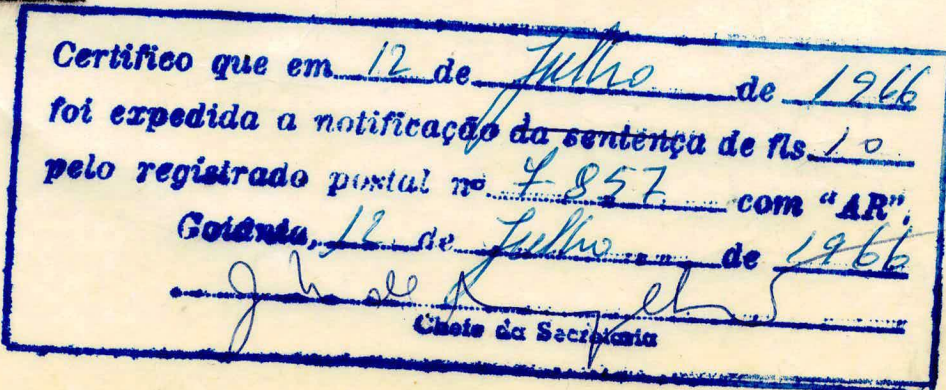 Certifico que em 12 de Julho de 1966
foi expedida a notificação da sentença de fls. 10
pelo registrado postal nº 7-857 com "AR".
Goiânia, 12 de Julho de 1966
Chefe da Secretaria